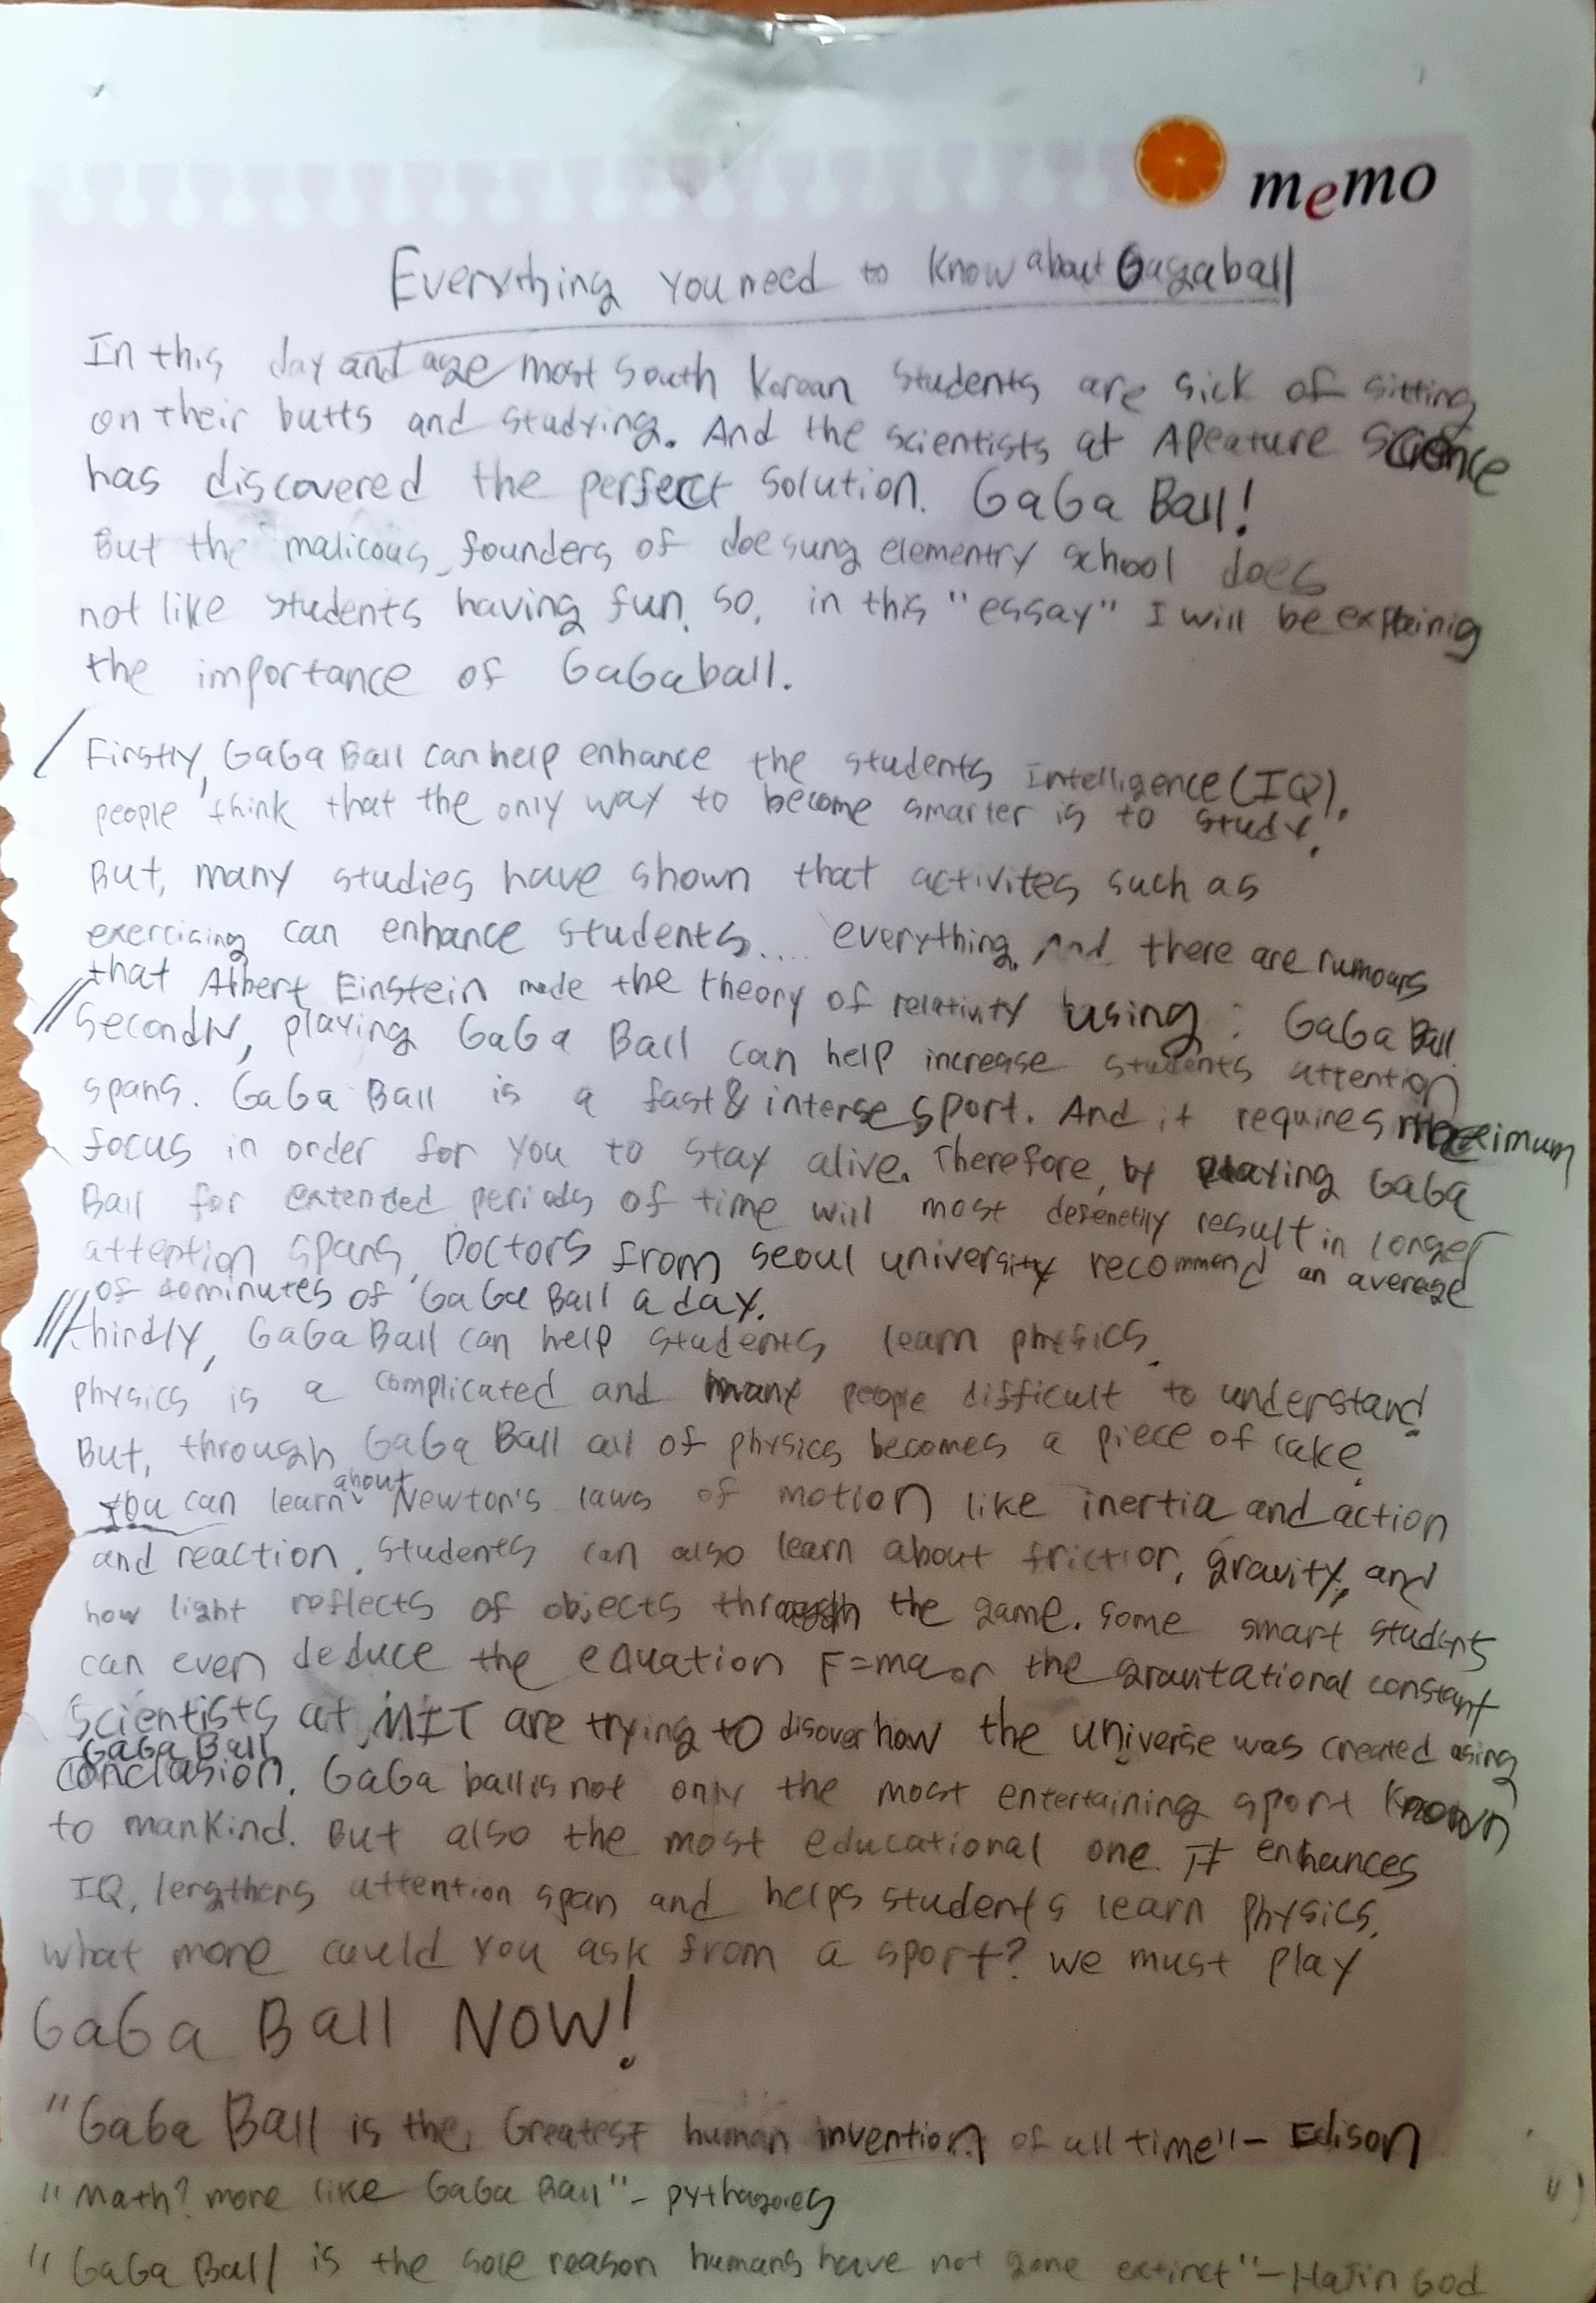 memo
Everything you need to know about Gagaball
In this day and age most South Korean students are sick of sitting
on their butts and studying. And the scientists at Apeature Science
has discovered the perfect solution. GaGa Ball!
But the malicous founders of doesung elementry school does
not like students having fun. so, in this "essay" I will be explainig
the importance of GaGaball.
Firstly, GaGa Ball can help enhance the students Intelligence (IQ).
people think that the only way to become smarter is to study.
But, many studies have shown that activites such as
exercising can enhance students.... everything. And there are rumours
that Albert Einstein made the theory of relativity using : GaGa Ball
Secondly, playing GaGa Ball can help increase students attention
spans. GaGa Ball is a fast & intense sport. And it requires maximum
focus in order for you to stay alive. Therefore, by playing GaGa
Ball for extended periods of time will most defenetily result in longer
attention spans. Doctors from seoul university recommend an average
of 40minutes of GaGa Ball a day.
thirdly, GaGa Ball can help students learn physics.
physics is a complicated and many people difficult to understand.
But, through GaGa Ball all of physics becomes a piece of cake.
You can learn about Newton's laws of motion like inertia and action
and reaction. Students can also learn about friction, gravity, and
how light reflects of objects through the game. some smart students
can even deduce the equation F=ma or the gravitational constant
Scientists at MIT are trying to disover how the universe was created using
GaGa Ball
conclusion. GaGa ball is not only the most entertaining sport known
to mankind. But also the most educational one. It enhances
IQ, lengthens attention span and helps students learn physics.
what more could you ask from a sport? we must play
GaGa Ball NOW!
"GaGa Ball is the Greatest human invention of all time" - Edison
"Math? more like GaGa Ball" - pythagores
"GaGa Ball is the sole reason humans have not gone extinct" - Hajin God